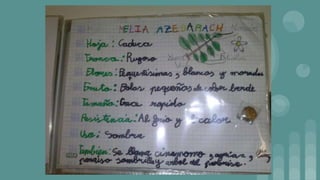 MELIA AZEDARACH
Hoja: Caduca
Tronco: Rugoso
Flores: Pequeñísimas, blancas y moradas
Fruto: Bolas pequeñas de color berde
Tamaño: Crece rapido
Resistencia: Al frio y calor
Uso: Sombra
También: Se llama cinamomo,
paraiso sombrilla y arbol del